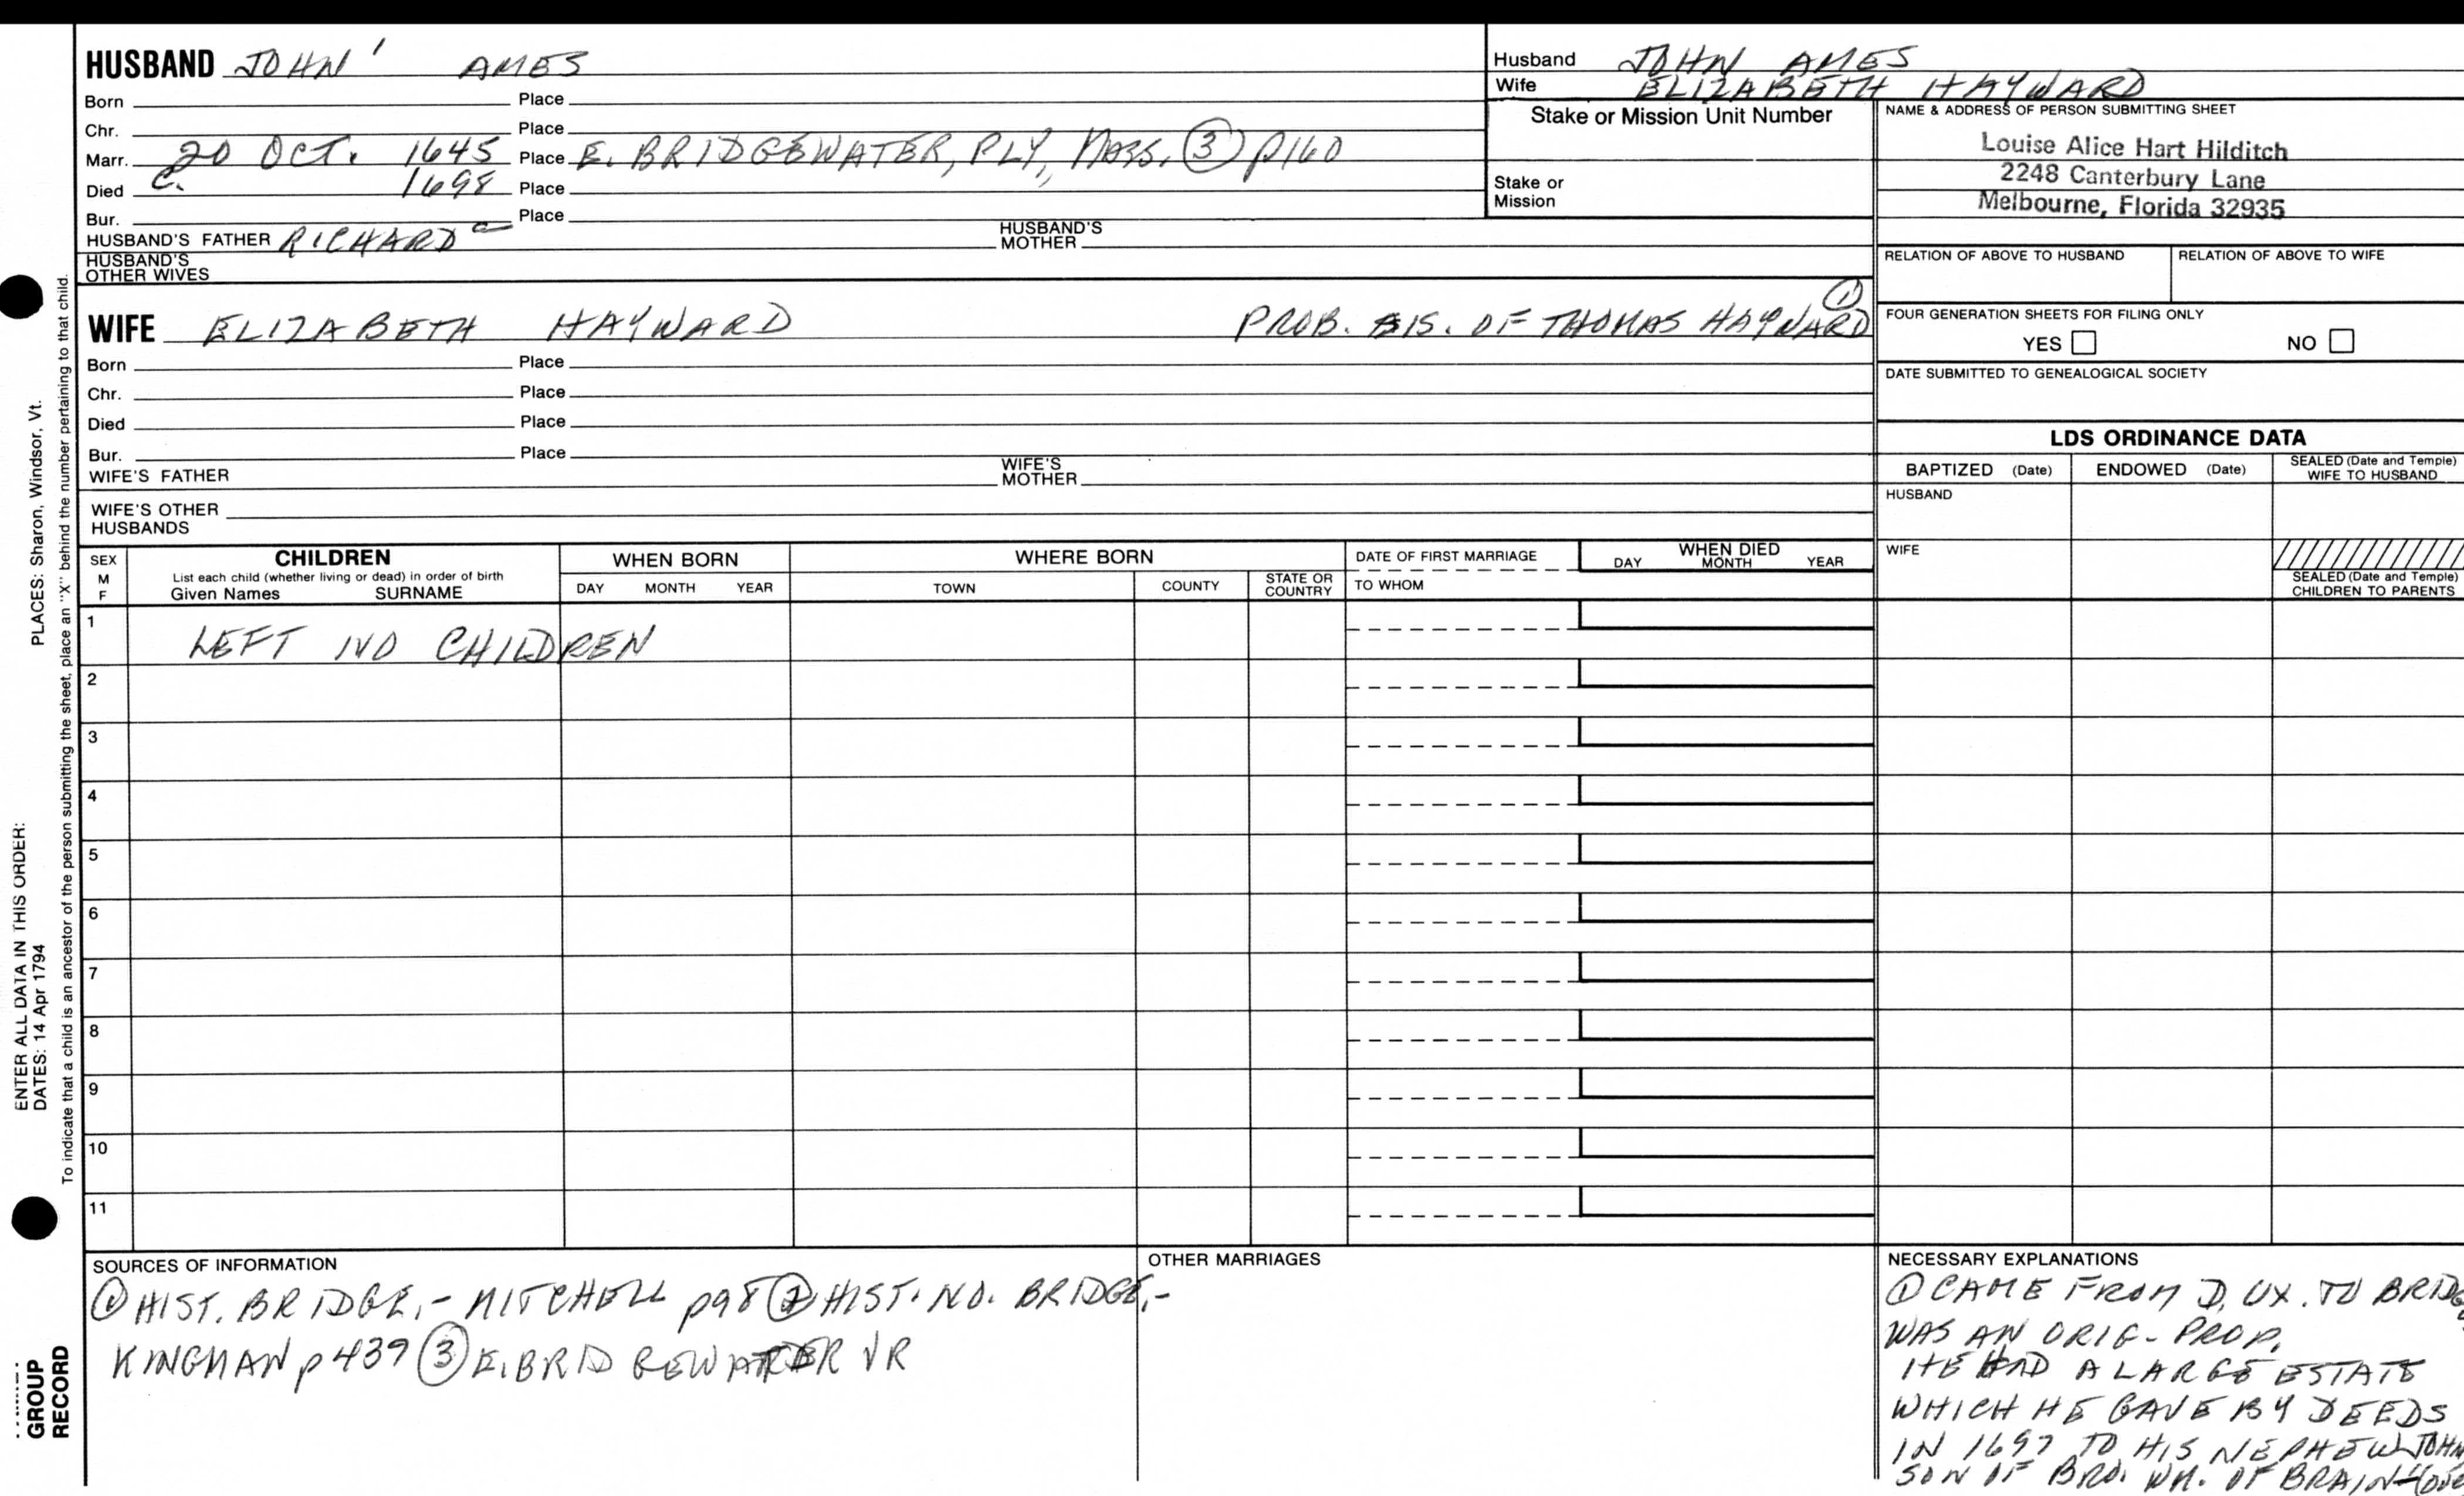 HUSBAND JOHN ' AMES
Born Place
Chr. Place
Marr. 20 OCT. 1645 Place E. BRIDGEWATER, PLY, MASS. (3) p160
Died C. 1698 Place
Bur. Place
HUSBAND'S FATHER RICHARD HUSBAND'S MOTHER
HUSBAND'S OTHER WIVES
Husband JOHN AMES
Wife ELIZABETH HAYWARD
Stake or Mission Unit Number
Stake or Mission
NAME & ADDRESS OF PERSON SUBMITTING SHEET
Louise Alice Hart Hilditch
2248 Canterbury Lane
Melbourne, Florida 32935
RELATION OF ABOVE TO HUSBAND RELATION OF ABOVE TO WIFE
FOUR GENERATION SHEETS FOR FILING ONLY
YES NO
DATE SUBMITTED TO GENEALOGICAL SOCIETY
WIFE ELIZABETH HAYWARD PROB. SIS. OF THOMAS HAYWARD (1)
Born Place
Chr. Place
Died Place
Bur. Place
WIFE'S FATHER WIFE'S MOTHER
WIFE'S OTHER HUSBANDS
LDS ORDINANCE DATA
BAPTIZED (Date) ENDOWED (Date) SEALED (Date and Temple) WIFE TO HUSBAND
HUSBAND
WIFE
SEALED (Date and Temple) CHILDREN TO PARENTS
SEX M F
CHILDREN
List each child (whether living or dead) in order of birth
Given Names SURNAME
WHEN BORN
DAY MONTH YEAR
WHERE BORN
TOWN COUNTY STATE OR COUNTRY
DATE OF FIRST MARRIAGE
TO WHOM
WHEN DIED
DAY MONTH YEAR
1 LEFT NO CHILDREN
2
3
4
5
6
7
8
9
10
11
SOURCES OF INFORMATION
(1) HIST. BRIDGE.- MITCHELL p98 (2) HIST. NO. BRIDGE.-
KINGMAN p439 (3) E. BRIDGEWATER VR
OTHER MARRIAGES
NECESSARY EXPLANATIONS
(1) CAME FROM DUX. TO BRIDG
WAS AN ORIG- PROP.
HE HAD A LARGE ESTATE
WHICH HE GAVE BY DEEDS
IN 1697 TO HIS NEPHEW JOHN
SON OF BRO. WM. OF BRAIN-
PLACES: Sharon, Windsor, Vt.
ENTER ALL DATA IN THIS ORDER:
DATES: 14 Apr 1794
To indicate that a child is an ancestor of the person submitting the sheet, place an "X" behind the number pertaining to that child.
GROUP
RECORD